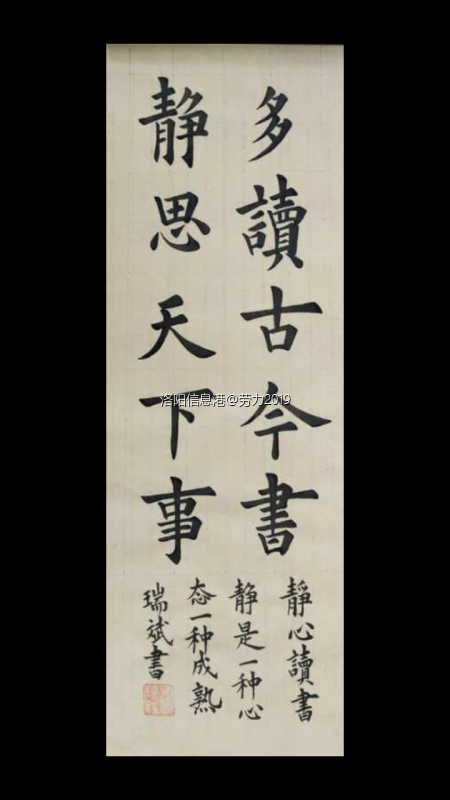 多讀古今書
静思天下事
靜心讀書
静是一种心
态一种成熟
瑞斌書
洛阳信息港@劳力2019